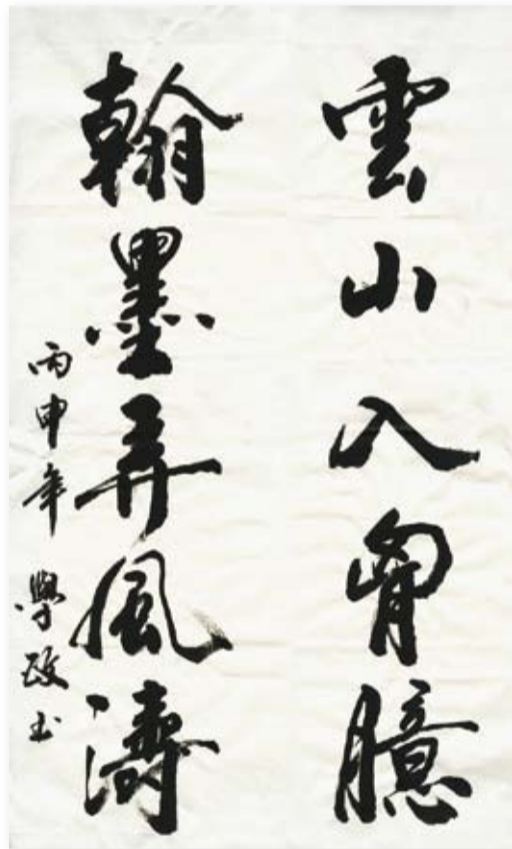 雲山入胷臆
翰墨弄風濤
丙申年 學政书